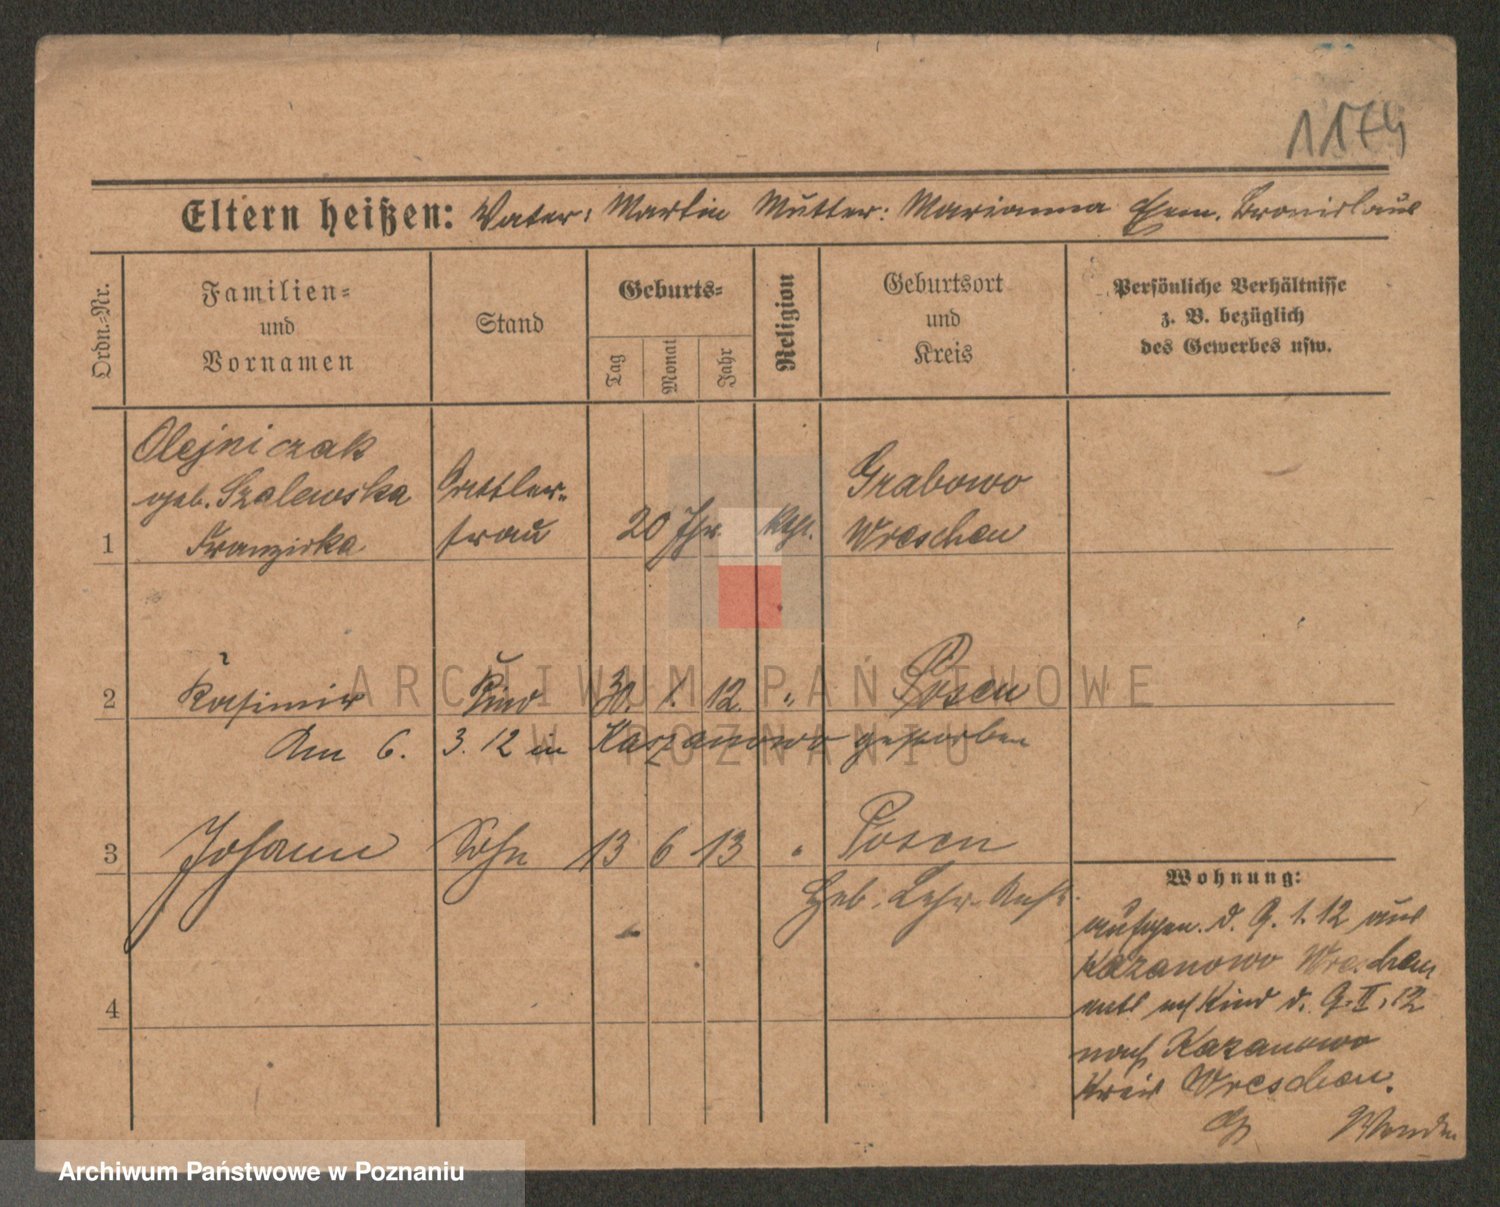 1174
Eltern heißen: Vater: Martin Mutter: Marianna Ehem. Bronislaus
Ordn.-Nr.
Familien-
und
Vornamen
Stand
Geburts-
Tag
Monat
Jahr
Religion
Geburtsort
und
Kreis
Persönliche Verhältnisse
z. B. bezüglich
des Gewerbes usw.
Olejniczak
geb. Szalewska
Franziska
Sattler-
frau
1
20 Jhr.
Kth.
Grabowo
Wreschen
2
Kasimir
Kind
30. 1. 12.
"
Posen
Am 6. 3. 12 in Kaszanowo gestorben
3
Johann
Sohn
13 6 13
"
Posen
Geb. Lehr. Anst.
4
Wohnung:
aufgen. d. 9. 1. 12 aus
Kazanowo Wreschen
entl. Kind d. 9. II. 12
nach Kazanowo
Kreis Wreschen.
ARCHIWUM PAŃSTWOWE
W POZNANIU
Archiwum Państwowe w Poznaniu